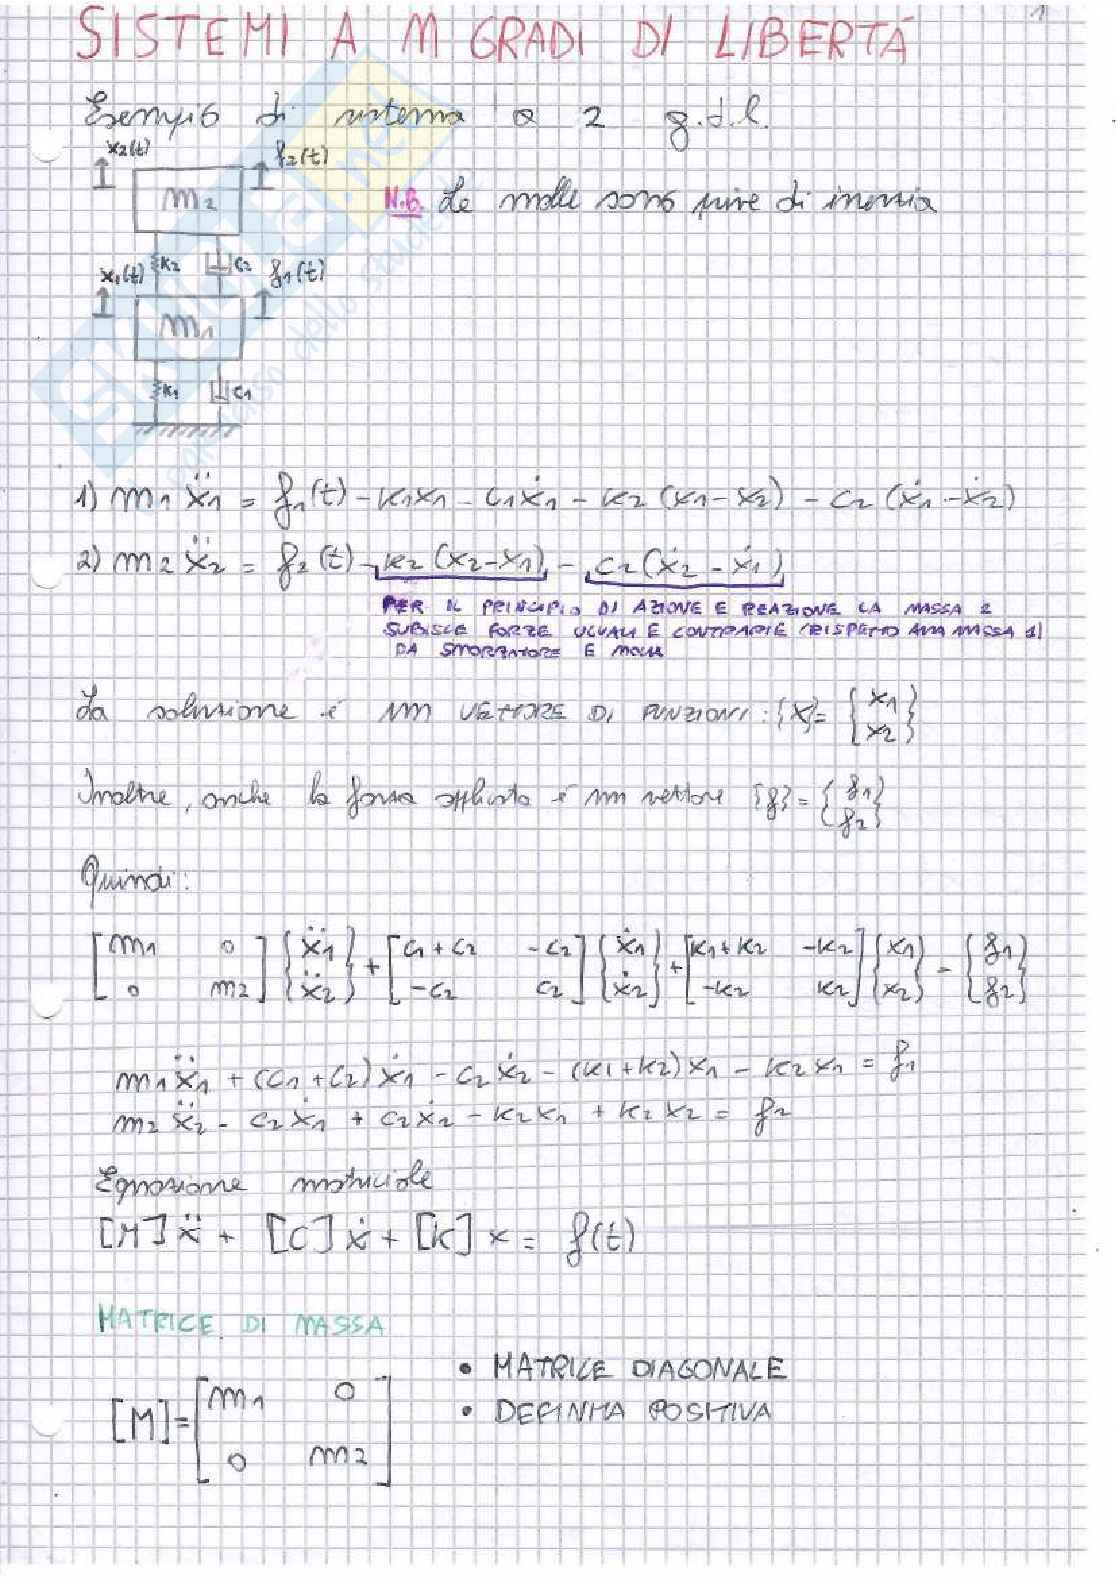 1
SISTEMI A M GRADI DI LIBERTÁ
Esempio di sistema a 2 g.d.l.
x2(t) f2(t)
m2
N.B. Le molle sono prive di inerzia
k2 c2
x1(t) f1(t)
m1
k1 c1
1) m1 ẍ1 = f1(t) - k1x1 - c1ẋ1 - k2 (x1-x2) - c2 (ẋ1 - ẋ2)
2) m2 ẍ2 = f2(t) - k2 (x2-x1) - c2(ẋ2 - ẋ1)
PER IL PRINCIPIO DI AZIONE E REAZIONE LA MASSA 2
SUBISCE FORZE UGUALI E CONTRARIE (RISPETTO ALLA MASSA 1)
DA SMORZATORE E MOLLA
La soluzione è un VETTORE DI FUNZIONI: {x}= {x1 x2}
Inoltre, anche la forza applicata è un vettore {f} = {f1 f2}
Quindi:
[m1 0] {ẍ1} + [c1+c2 -c2] {ẋ1} + [k1+k2 -k2] {x1} = {f1}
[0 m2] {ẍ2} [-c2 c2] {ẋ2} [-k2 k2] {x2} {f2}
m1ẍ1 + (c1+c2)ẋ1 - c2ẋ2 - (k1+k2)x1 - k2x1 = f1
m2ẍ2 - c2ẋ1 + c2ẋ2 - k2x1 + k2x2 = f2
Equazione matriciale
[M]ẍ + [C]ẋ + [K] x = f(t)
MATRICE DI MASSA
[M]= [m1 0
0 m2]
• MATRICE DIAGONALE
• DEFINITA POSITIVA